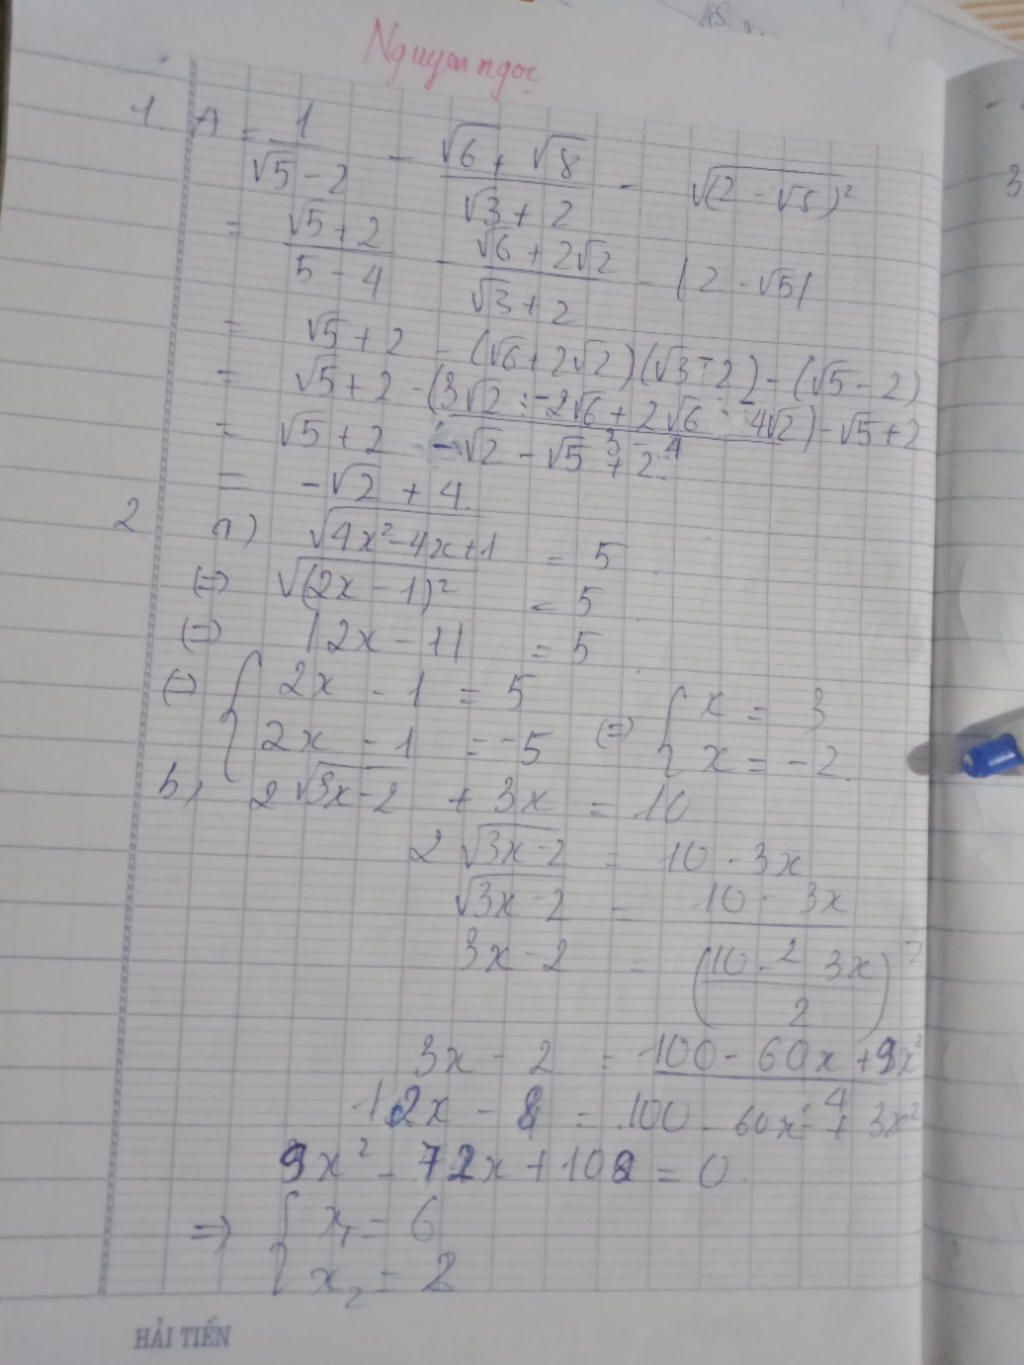 Nguyen ngọc
1 A = 1/(√5 - 2) - (√6 + √8)/(√3 + 2) - √(2 - √5)²
= (√5 + 2)/(5 - 4) - (√6 + 2√2)/(√3 + 2) - |2 - √5|
= √5 + 2 - (√6 + 2√2)(√3 - 2) - (√5 - 2)
= √5 + 2 - (3√2 - 2√6 + 2√6 - 4√2)/(3 - 4) - √5 + 2
= √5 + 2 - √2 - √5 + 2
= -√2 + 4.
2 a) √4x² - 4x + 1 = 5
(=) √(2x - 1)² = 5
(=) |2x - 1| = 5
(=) { 2x - 1 = 5
2x - 1 = -5 (=) { x = 3
x = -2.
b, 2√3x - 2 + 3x = 10
2√3x - 2 = 10 - 3x
√3x - 2 = (10 - 3x)/2
3x - 2 = ((10 - 3x)/2)²
3x - 2 = (100 - 60x + 9x²)/4
12x - 8 = 100 - 60x + 3x²
9x² - 72x + 108 = 0
=> { x₁ = 6
x₂ = 2
3
HẢI TIẾN